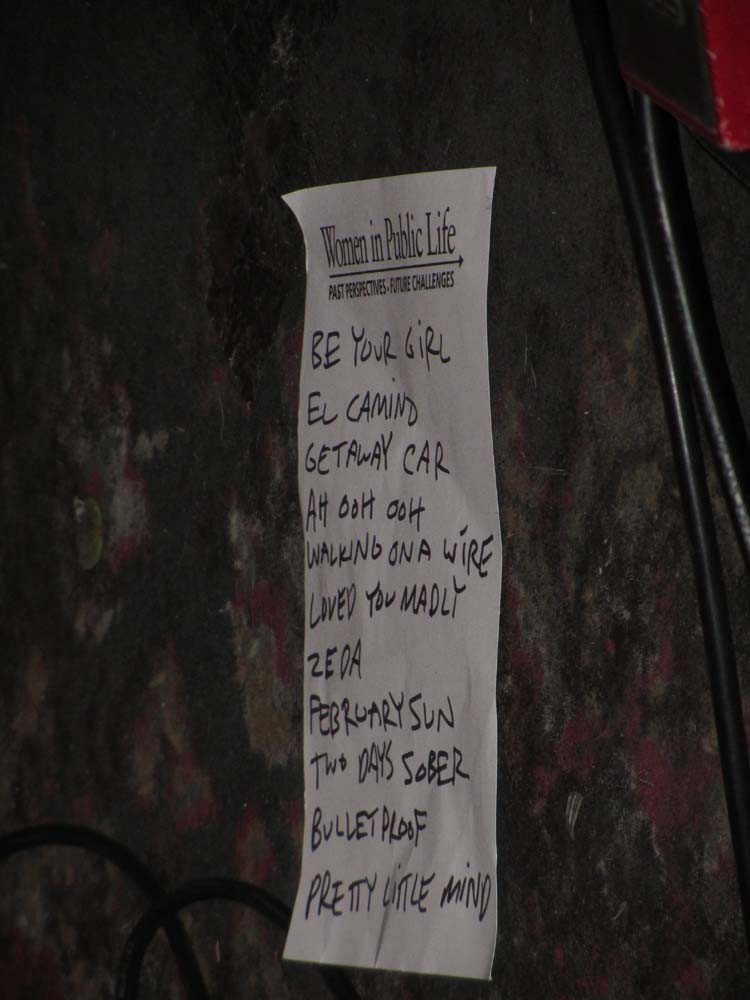 Women in Public Life
PAST PERSPECTIVES • FUTURE CHALLENGES
BE YOUR GIRL
EL CAMINO
GETAWAY CAR
AH OOH OOH
WALKING ON A WIRE
LOVED YOU MADLY
ZEDA
FEBRUARY SUN
TWO DAYS SOBER
BULLETPROOF
PRETTY LITTLE MIND